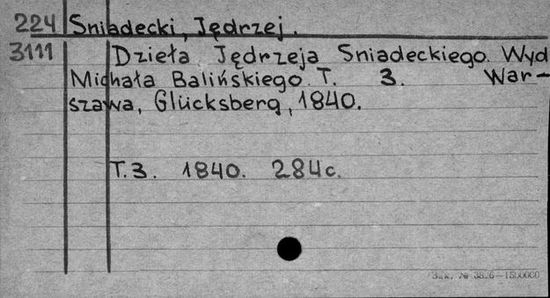 224 Sniadecki, Jędrzej.
3111 Dzieła Jędrzeja Sniadeckiego. Wyd
Michała Balińskiego T. 3. War-
szawa, Glücksberg, 1840.
T.3. 1840. 284c.
Зак. № 3826-1500000